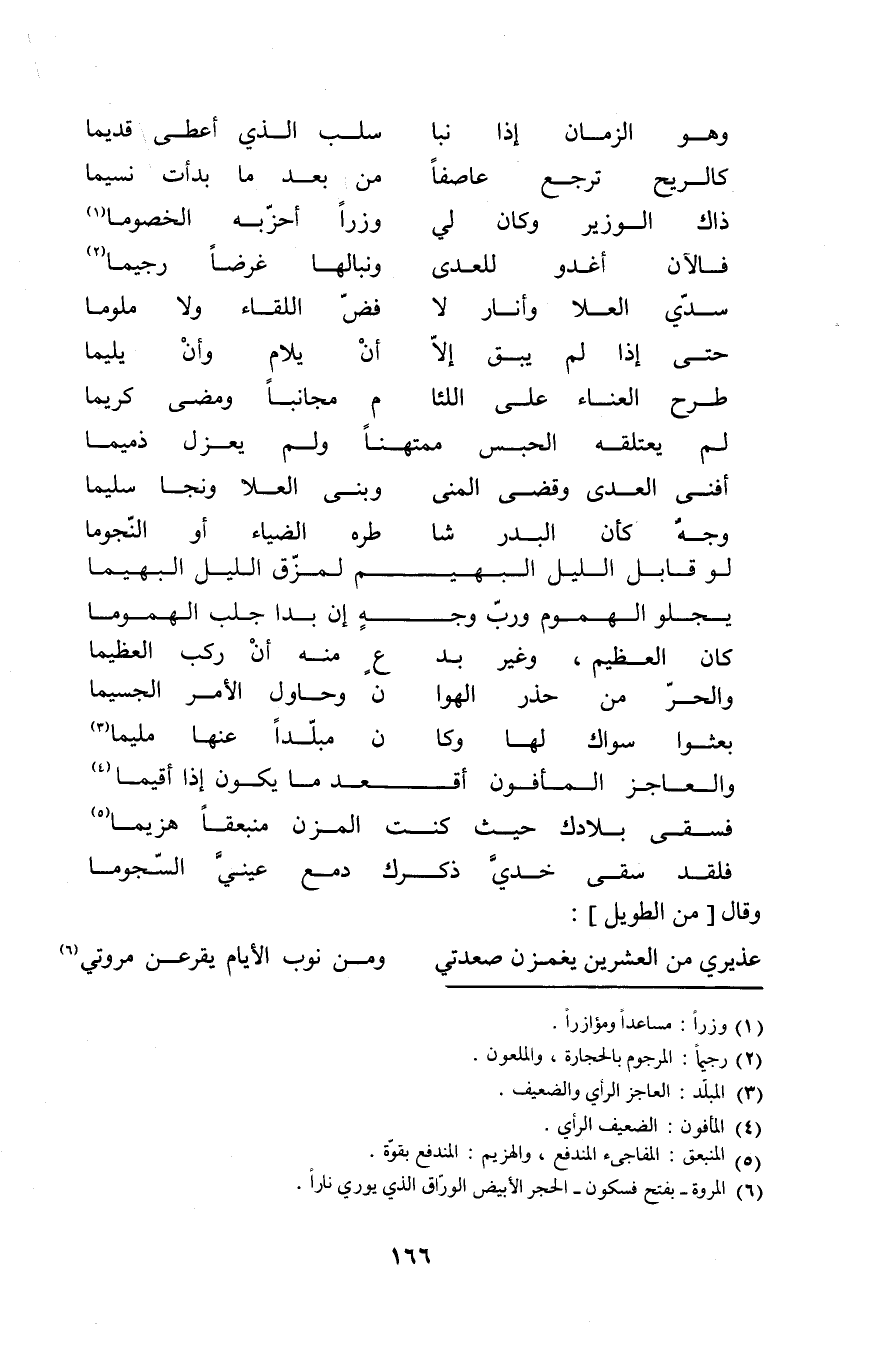 وهو الزمان إذا نبا سلب الذي أعطى قديما
كالريح ترجع عاصفاً من بعد ما بدأت نسيما
ذاك الوزير وكان لي وزراً أحزّ به الخصوما(١)
فالآن أغدو للعدى ونبالها غرضاً رجيما(٢)
سدّي العلا وأنار لا فضّ اللقاء ولا ملوما
حتى إذا لم يبق إلاّ أنْ يلام وأنْ يليما
طرح العناء على اللئا م مجانباً ومضى كريما
لم يعتلقه الحبس ممتهناً ولم يعزل ذميما
أفنى العدى وقضى المنى وبنى العلا ونجا سليما
وجهٌ كأن البدر شا طره الضياء أو النّجوما
لو قابل الليل البهيم لمزّق الليل البهيما
يجلو الهموم وربّ وجهٍ إن بدا جلب الهموما
كان العظيم ، وغير بد عٍ منه أنْ ركب العظيما
والحرّ من حذر الهوا ن وحاول الأمر الجسيما
بعثوا سواك لها وكا ن مبلّداً عنها مليما(٣)
والعاجز المأفون أقعد ما يكون إذا أقيما(٤)
فسقى بلادك حيث كنت المزن منبعقاً هزيما(٥)
فلقد سقى خديَّ ذكرك دمع عينيَّ السّجوما
وقال [ من الطويل ] :
عذيري من العشرين يغمزن صعدتي ومن نوب الأيام يقرعن مروتي(٦)
(١) وزراً : مساعداً ومؤازراً .
(٢) رجيماً : المرجوم بالحجارة ، والملعون .
(٣) المبلّد : العاجز الرأي والضعيف .
(٤) المأفون : الضعيف الرأي .
(٥) المنبعق : المفاجىء المندفع ، والهزيم : المندفع بقوّة .
(٦) المروة ـ بفتح فسكون ـ الحجر الأبيض الورّاق الذي يوري ناراً .
١٦٦